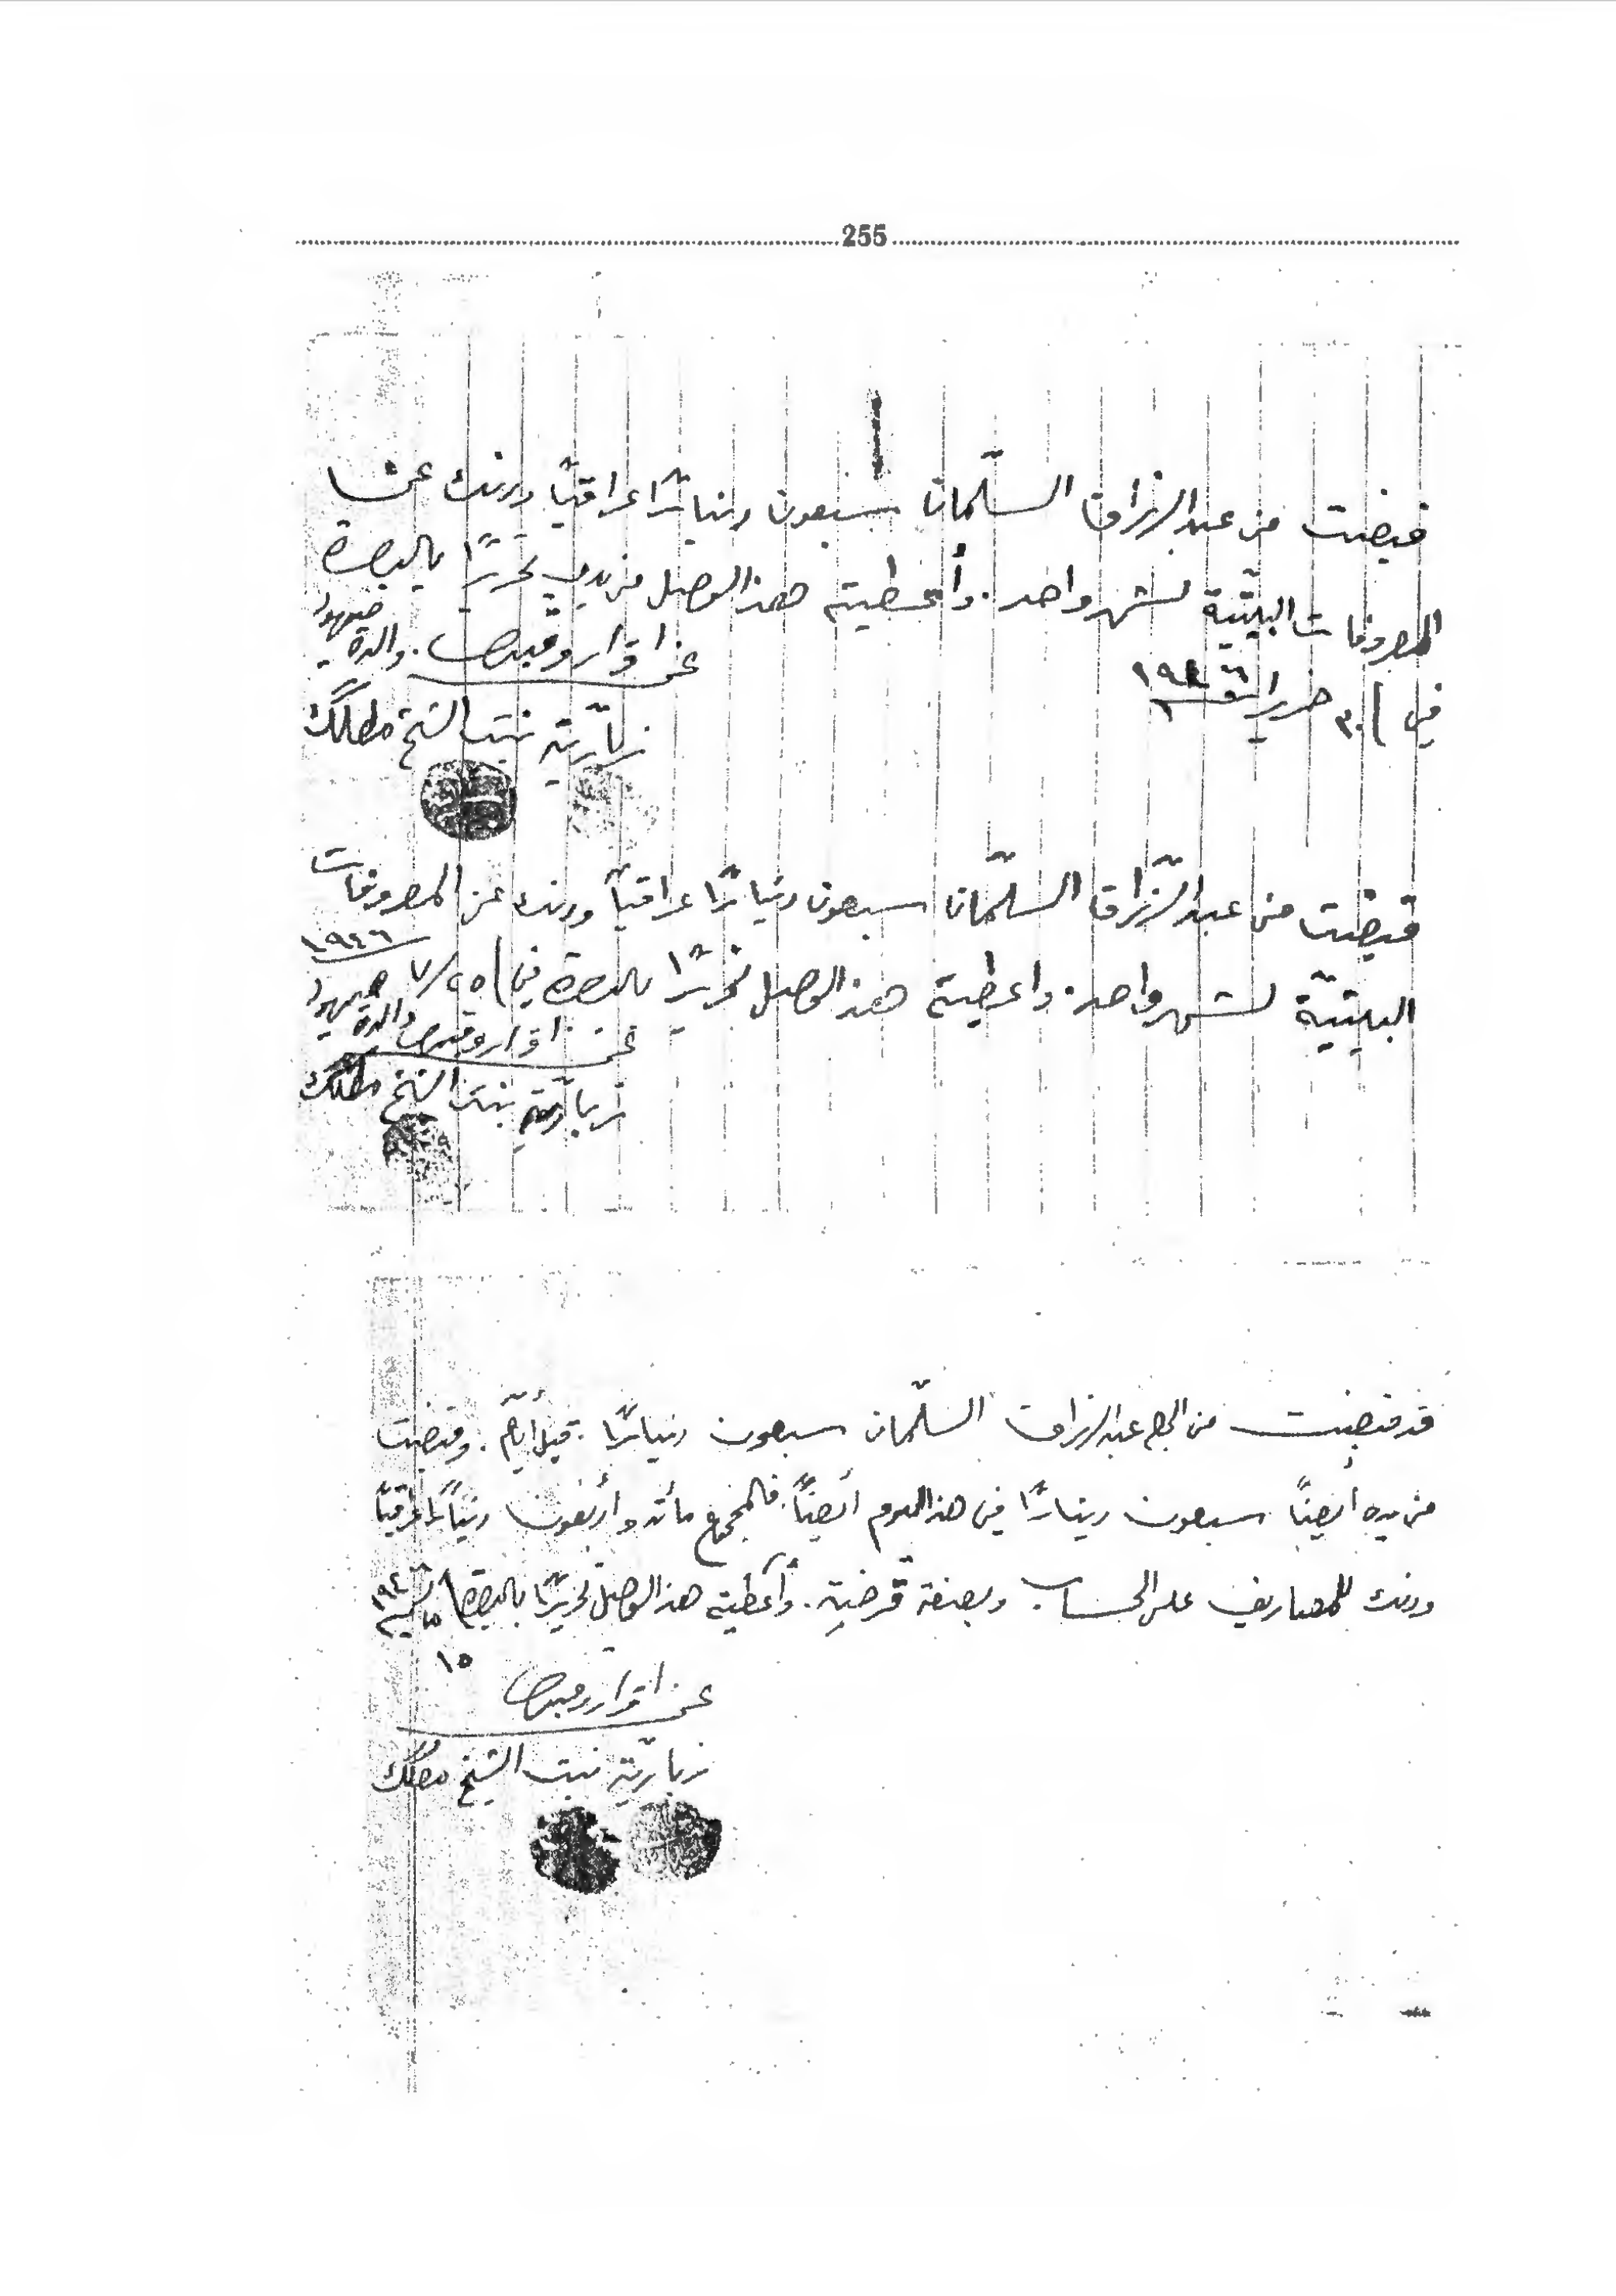 255
قبضت من عبد الرزاق السلمان سبعون دينارًا عراقيًا وذلك عن
المصروفات البيتية لشهر واحد. وأعطيته هذا الوصل من يدي تحريرًا بالبصرة
في ٣٠ حزيران ١٩٤٦
عن اقرار وقبض. والدة صيهود
زباريّة بنت الشيخ مطلك
قبضت من عبد الرّزاق السلّمان سبعون دينارًا عراقيًا وذلك عن المصروفات
البيتيّة لشهر واحد. واعطيته هذا الوصل تحريرًا بالبصرة في ٢٥/٧ ١٩٤٦
عن اقرار وقبض والدة صيهود
زباريّة بنت الشيخ مطلك
قد قبضت من الحاج عبد الرزاق السلّمان سبعون دينارًا. قبل أيّام. وقبضت
من يده أيضًا سبعون دينارًا في هذا اليوم أيضًا. فالمجموع مأئة وأربعون دينارًا عراقيًا
وذلك للمصاريف على الحساب وبصفة قرضية. وأعطيته هذا الوصل تحريرًا بالبصرة ١٥ مايس ١٩٤٦
عن اقرار وقبض
زباريّة بنت الشيخ مطلك